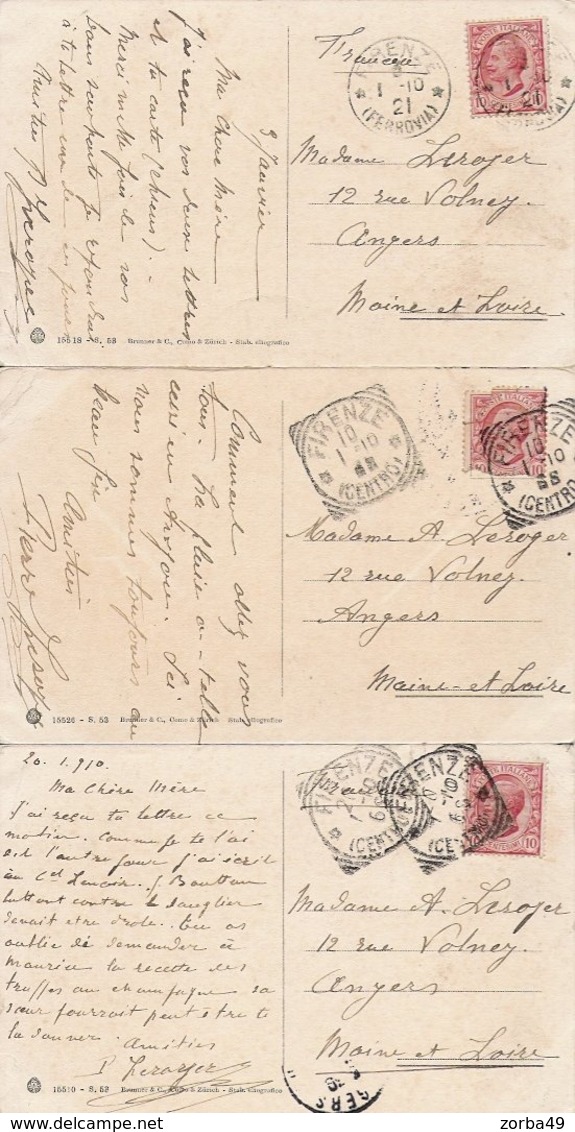 3 Janvier
Ma Chère Mère
J'ai reçu vos deux lettres
et ta carte (choeurs). -
Merci mille fois de vos
bons souvenirs je répondrai
à ta lettre un de ces jours
P Leroyer
15518 - S. 53 Brunner & C., Como & Zürich - Stab. eliografico
Francia
FIRENZE
1 - 10
21
(FERROVIA)
POSTE ITALIANE
10
Madame Leroyer
12 rue Volney
Angers
Maine et Loire
Comment allez vous
tous. La pluie a-t-elle
cessé en Anjou. Ici
nous sommes toujours au
beau fix
Amitiés
Pierre Leroyer
15526 - S. 53 Brunner & C., Como & Zürich Stab. eliografico
FIRENZE
10
1 - 10
(CENTRO)
POSTE ITALIANE
10
FIRENZE
10
1 - 10
(CENTRO)
Madame A. Leroyer
12 rue Volney.
Angers
Maine-et-Loire
20. 1. 910.
Ma Chère Mère
J'ai reçu ta lettre ce
matin. Comme je te l'ai
dit l'autre jour j'ai écrit
au Ct Lenoir. J. Bouttou
luttant contre le sanglier
devait etre drole. Tu as
oublié de demander à
Maurice la recette des
truffes au champagne sa
sœur pourrait peut être te
la donner. Amitiés
P Leroyer
15510 - S. 53 Brunner & C., Como & Zürich - Stab. eliografico
FIRENZE
(CENTRO)
FIRENZE
(CENTRO)
POSTE ITALIANE
10
Madame A. Leroyer
12 rue Volney.
Angers
Maine et Loire
GERS
zorba49